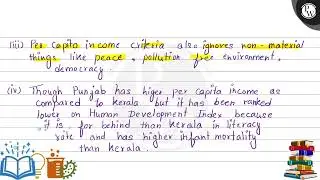 (iii) Per capita income criteria also ignores non-material
things like peace, pollution free environment,
democracy.
(iv) Though Punjab has higer per capita income as
compared to kerala but it has been ranked
lower on Human Development Index because
it is far behind than kerala in literacy
rate and has higher infant mortality
than kerala.